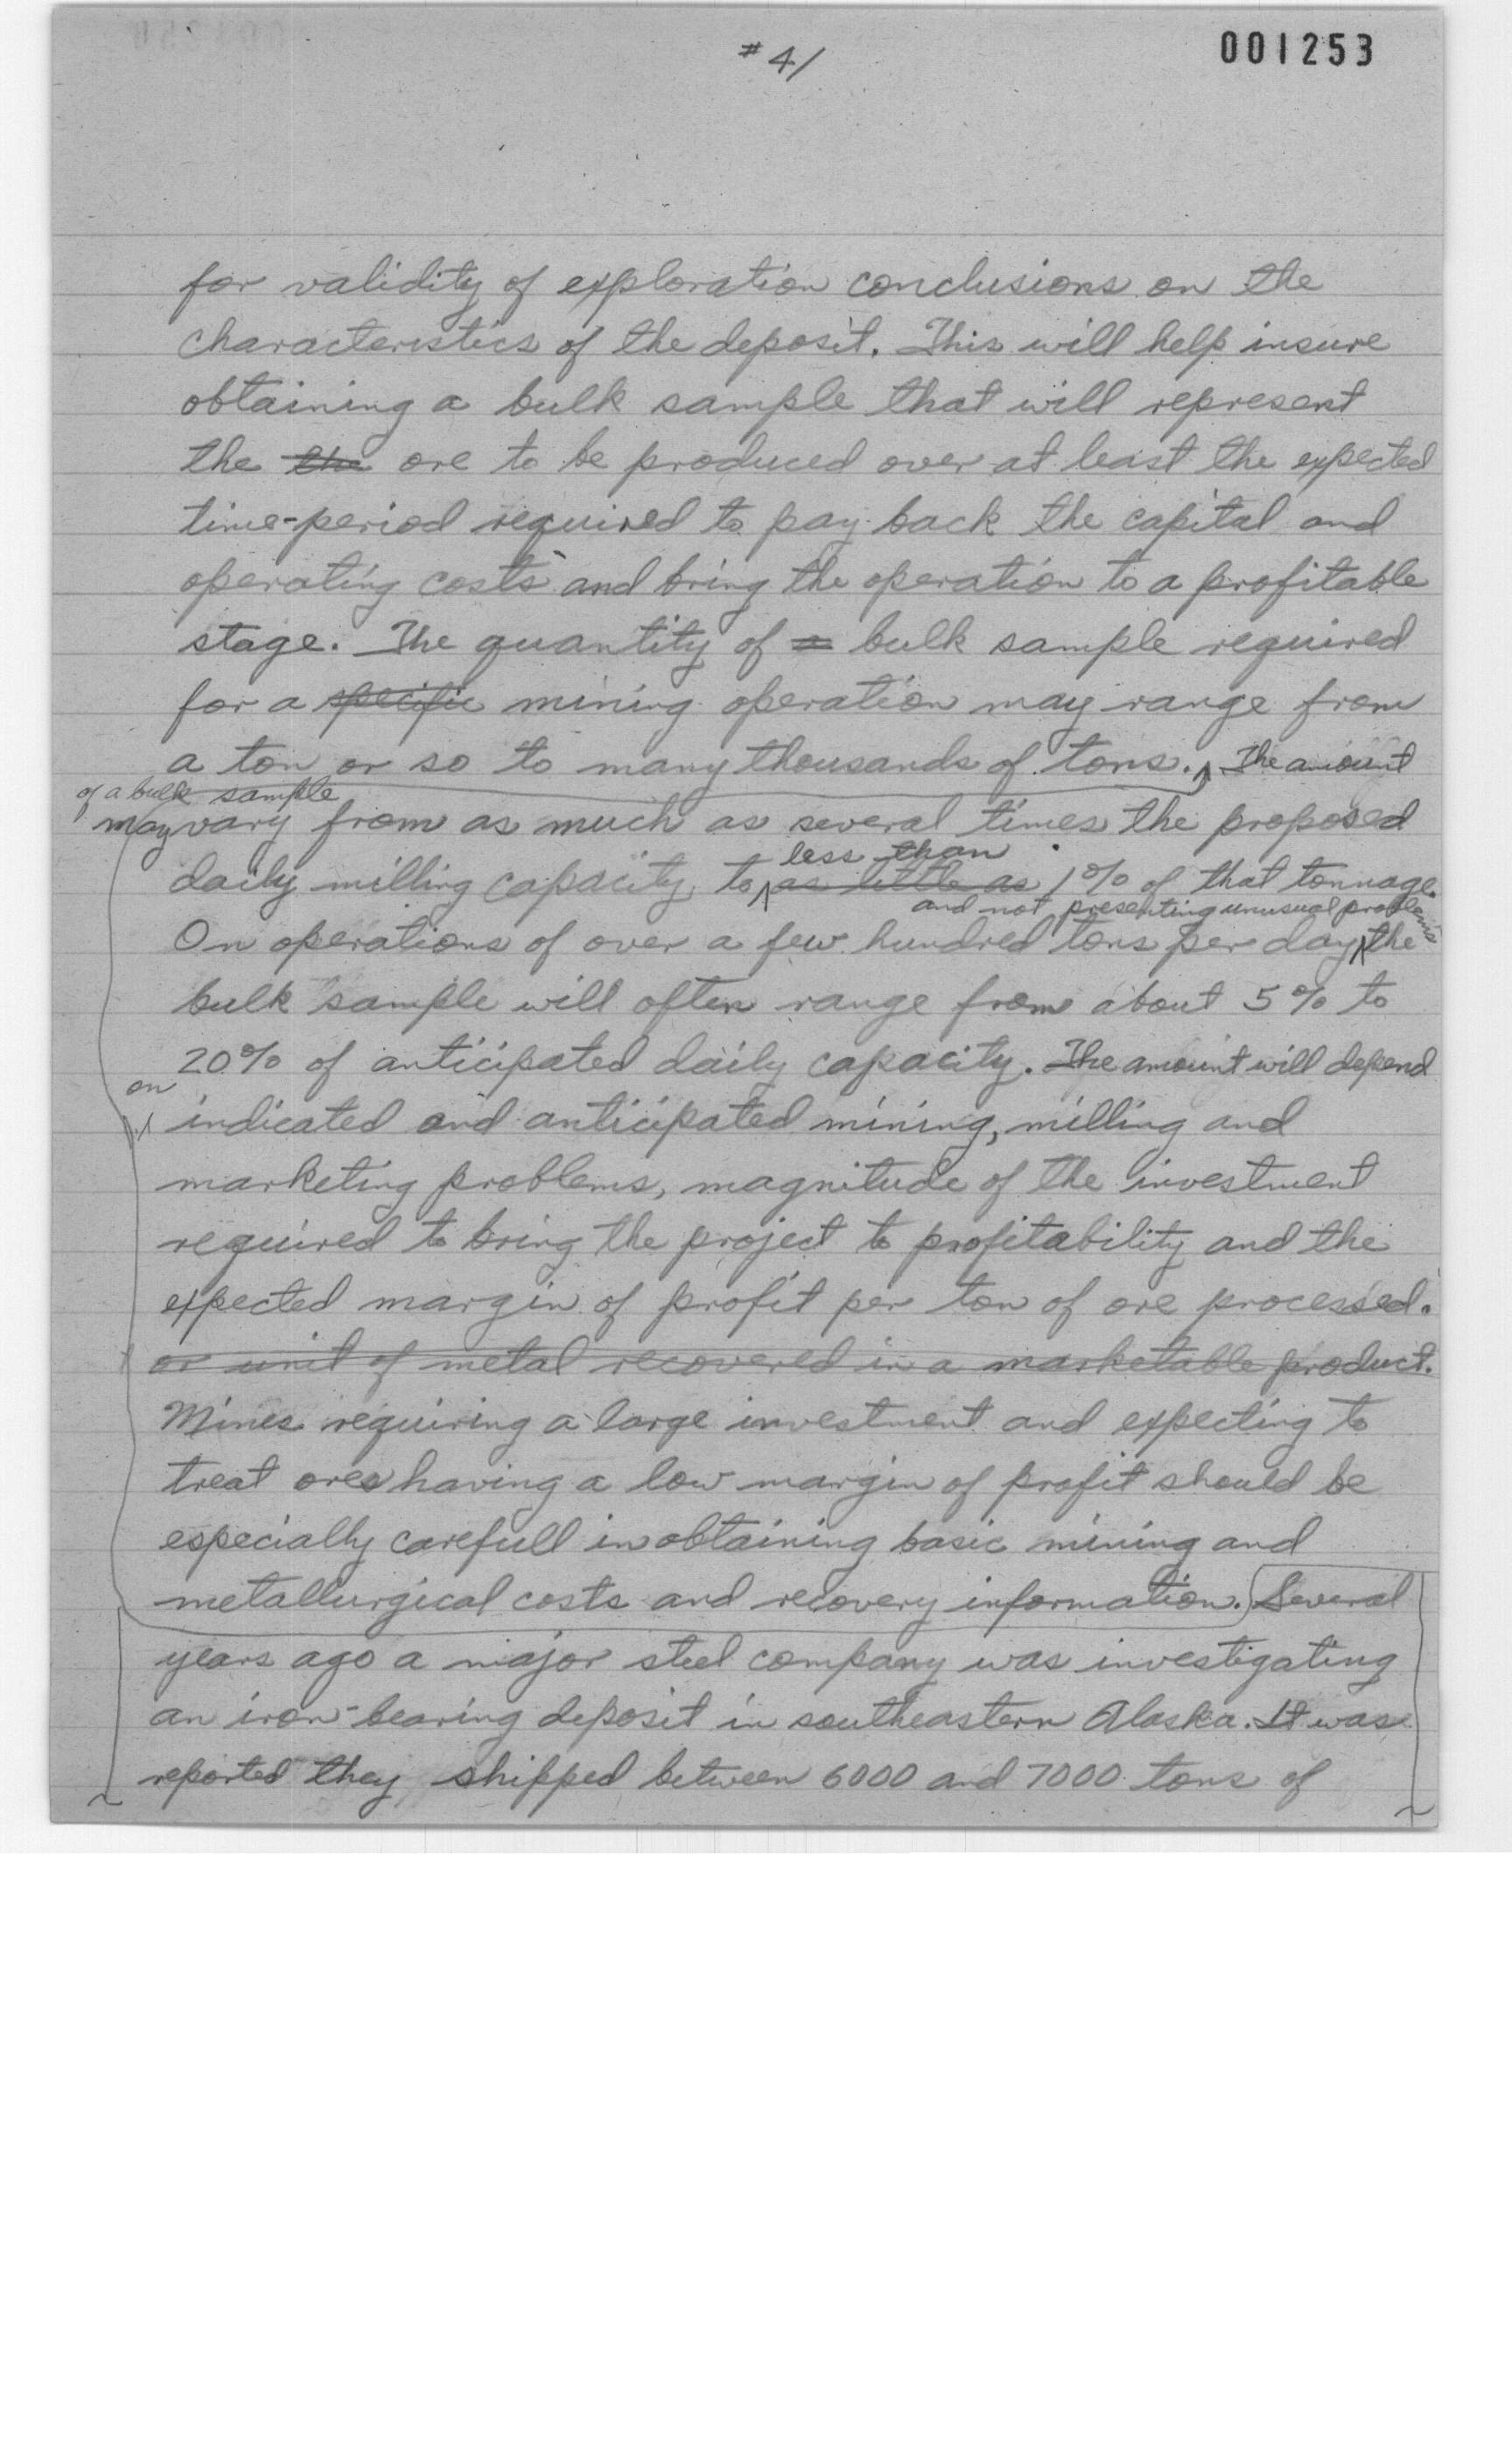 #41
001253
for validity of exploration conclusions on the
characteristics of the deposit. This will help insure
obtaining a bulk sample that will represent
the the ore to be produced over at least the expected
time-period required to pay back the capital and
operating costs and bring the operation to a profitable
stage. The quantity of a bulk sample required
for a specific mining operation may range from
a ton or so to many thousands of tons. The amount
of a bulk sample
may vary from as much as several times the proposed
less than
daily milling capacity, to as little as 1% of that tonnage.
and not presenting unusual problems
On operations of over a few hundred tons per day the
bulk sample will often range from about 5% to
20% of anticipated daily capacity. The amount will depend
on
indicated and anticipated mining, milling and
marketing problems, magnitude of the investment
required to bring the project to profitability and the
expected margin of profit per ton of ore processed.
or unit of metal recovered in a marketable product.
Mines requiring a large investment and expecting to
treat ores having a low margin of profit should be
especially carefull in obtaining basic mining and
metallurgical costs and recovery information. Several
years ago a major steel company was investigating
an iron-bearing deposit in southeastern Alaska. It was
reported they shipped between 6000 and 7000 tons of